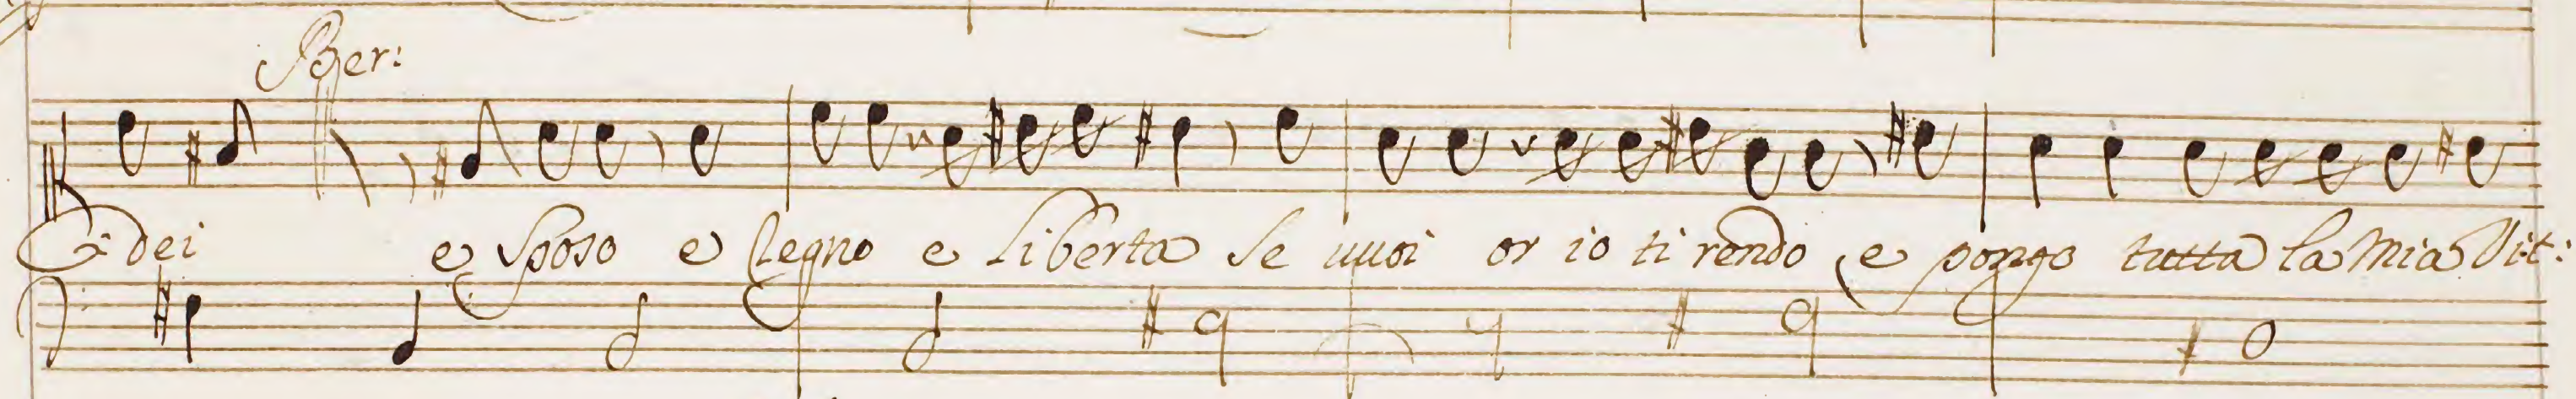 Ber:
dei e sposo e legno e liberta se vuoi or io ti rendo e pongo tutta la mia Vit: